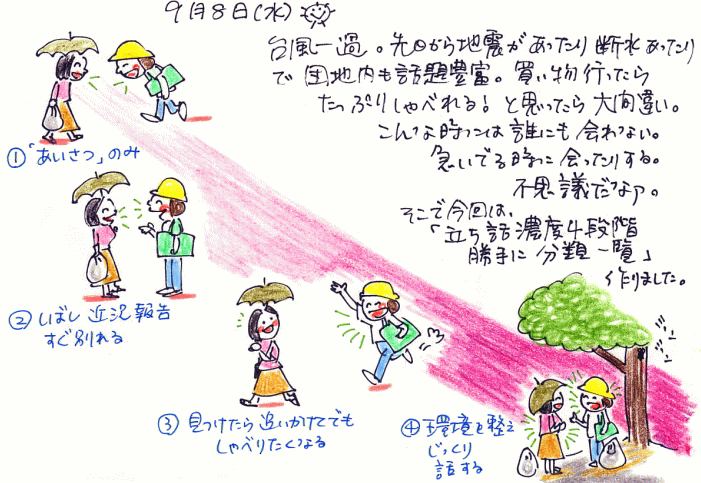 9月8日(水)
台風一過。先日から地震があったり断水あったり
で団地内も話題豊富。買い物行ったら
たっぷりしゃべれる!と思ったら大間違い。
こんな時には誰にも会わない。
急いでる時に会ったりする。
不思議だなァ。
そこで今回は、
「立ち話濃度4段階
勝手に分類一覧」
作りました。
①「あいさつ」のみ
②しばし近況報告
すぐ別れる
③見つけたら追いかけてでも
しゃべりたくなる
④環境を整え
じっくり
話する
ジン
ジン